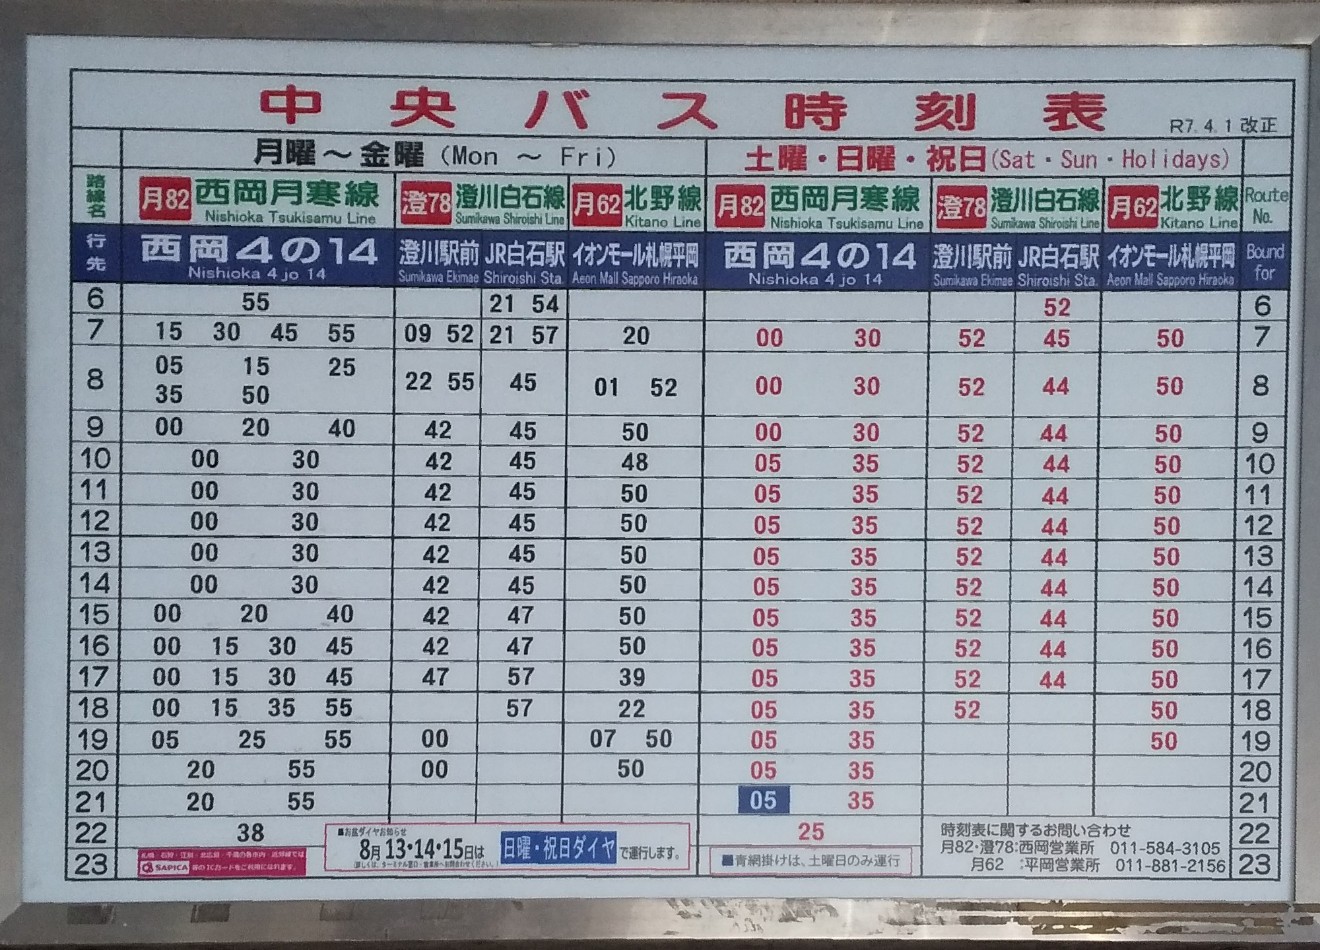 中央バス時刻表
R7.4.1 改正
月曜～金曜 (Mon ～ Fri) 土曜・日曜・祝日(Sat・Sun・Holidays)
路線名 月82 西岡月寒線 澄78 澄川白石線 月62 北野線 月82 西岡月寒線 澄78 澄川白石線 月62 北野線 Route No.
Nishioka Tsukisamu Line Sumikawa Shiroishi Line Kitano Line Nishioka Tsukisamu Line Sumikawa Shiroishi Line Kitano Line
行先 西岡4の14 澄川駅前 JR白石駅 イオンモール札幌平岡 西岡4の14 澄川駅前 JR白石駅 イオンモール札幌平岡 Bound for
Nishioka 4 jo 14 Sumikawa Ekimae Shiroishi Sta. Aeon Mall Sapporo Hiraoka Nishioka 4 jo 14 Sumikawa Ekimae Shiroishi Sta. Aeon Mall Sapporo Hiraoka
6 55 21 54 52 6
7 15 30 45 55 09 52 21 57 20 00 30 52 45 50 7
8 05 15 25 22 55 45 01 52 00 30 52 44 50 8
35 50
9 00 20 40 42 45 50 00 30 52 44 50 9
10 00 30 42 45 48 05 35 52 44 50 10
11 00 30 42 45 50 05 35 52 44 50 11
12 00 30 42 45 50 05 35 52 44 50 12
13 00 30 42 45 50 05 35 52 44 50 13
14 00 30 42 45 50 05 35 52 44 50 14
15 00 20 40 42 47 50 05 35 52 44 50 15
16 00 15 30 45 42 47 50 05 35 52 44 50 16
17 00 15 30 45 47 57 39 05 35 52 44 50 17
18 00 15 35 55 57 22 05 35 52 50 18
19 05 25 55 00 07 50 05 35 50 19
20 20 55 00 50 05 35 20
21 20 55 05 35 21
22 38 25 22
23 23
■お盆ダイヤお知らせ
8月13・14・15日は 日曜・祝日ダイヤ で運行します。
SAPICA
■青網掛けは、土曜日のみ運行
時刻表に関するお問い合わせ
月82・澄78:西岡営業所 011-584-3105
月62 :平岡営業所 011-881-2156